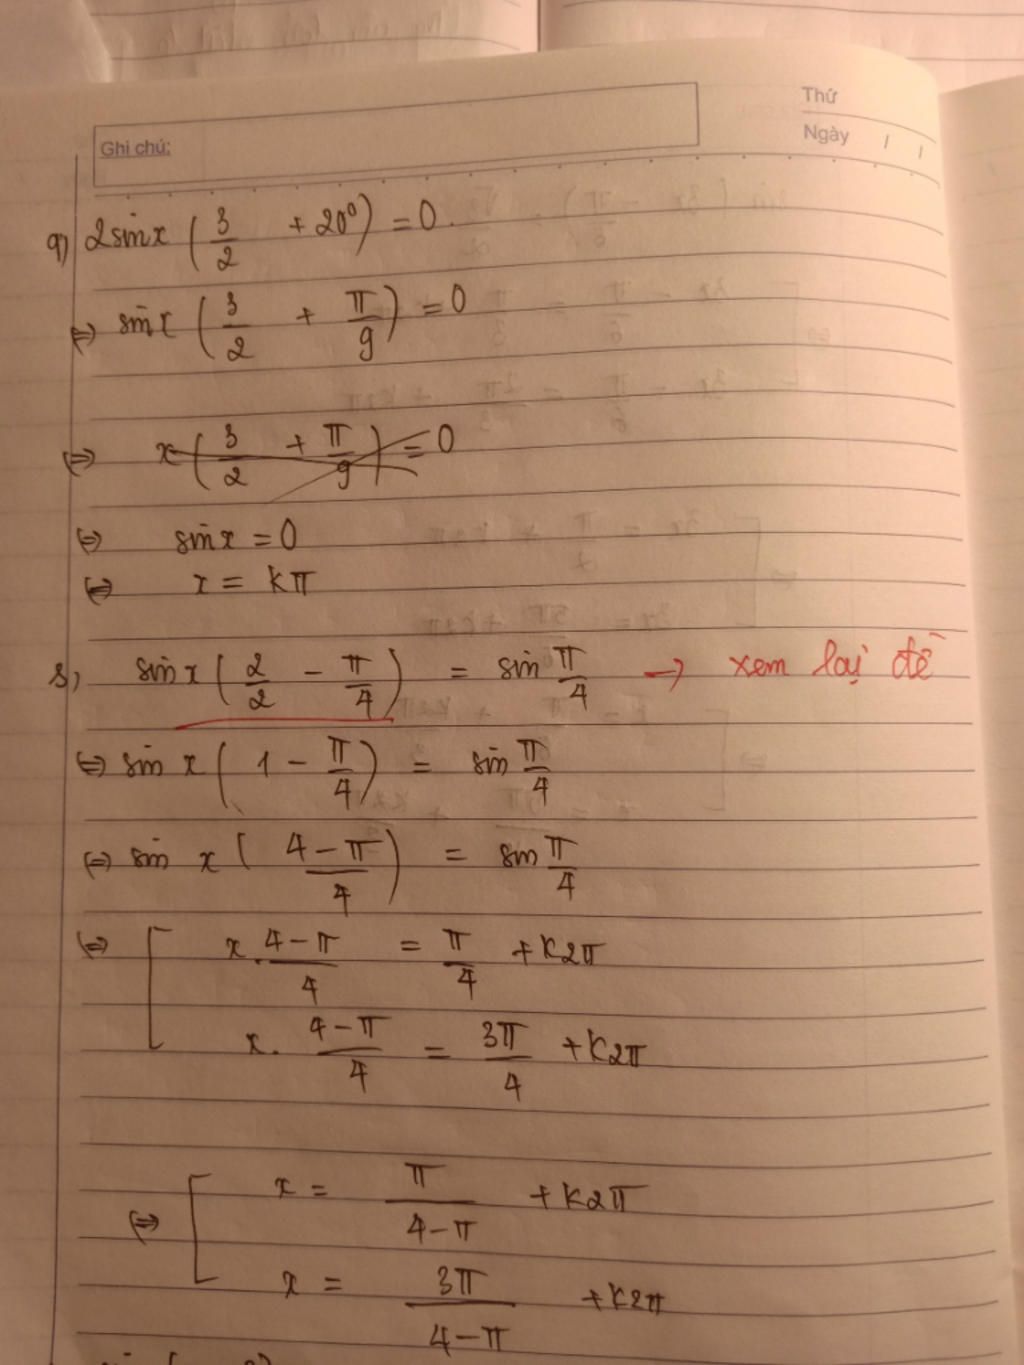 Thứ
Ghi chú:
Ngày / /
q) 2sinx (3/2 + 20⁰) = 0.
⇔ sinx (3/2 + π/9) = 0
⇔ x (3/2 + π/9) = 0
⇔ sinx = 0
⇔ x = kπ
s) sinx (2/2 − π/4) = sin π/4 → xem lại đề
⇔ sin x (1 − π/4) = sin π/4
⇔ sin x (4−π/4) = sin π/4
⇔ [ x. 4−π/4 = π/4 + k2π
x. 4−π/4 = 3π/4 + k2π
⇔ [ x = π/4−π + k2π
x = 3π/4−π + k2π